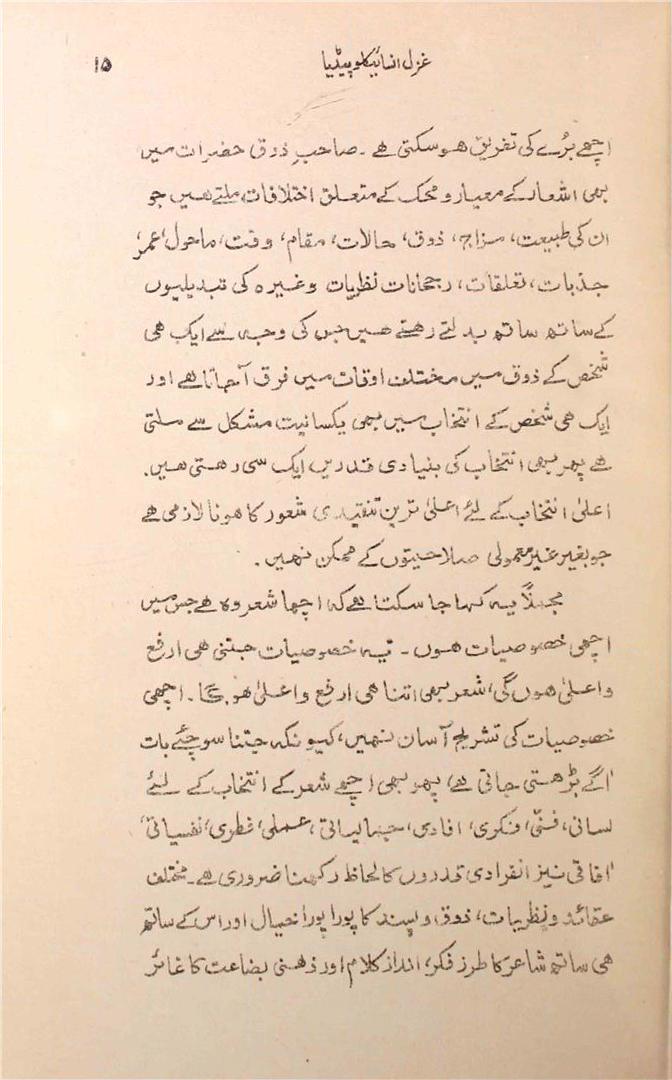 غزل انسائیکلوپیڈیا ۱۵
اچھے بُرے کی تفریق ہو سکتی ہے ۔ صاحبِ ذوق حضرات میں
بھی اشعار کے معیار و محک کے متعلق اختلافات ملتے ہیں جو
ان کی طبیعت، مزاج، ذوق، حالات، مقام، وقت، ماحول، عمر،
جذبات، تعلقات، رجحانات نظریات وغیرہ کی تبدیلیوں
کے ساتھ ساتھ بدلتے رہتے ہیں جس کی وجہ سے ایک ہی
شخص کے ذوق میں مختلف اوقات میں فرق آجاتا ہے اور
ایک ہی شخص کے انتخاب میں بھی یکسانیت مشکل سے ملتی
ہے پھر بھی انتخاب کی بنیادی قدریں ایک سی رہتی ہیں۔
اعلیٰ انتخاب کے لئے اعلیٰ ترین تنقیدی شعور کا ہونا لازمی ہے
جو بغیر غیر معمولی صلاحیتوں کے ممکن نہیں ۔
مجملاً یہ کہا جا سکتا ہے کہ اچھا شعر وہ ہے جس میں
اچھی خصوصیات ہوں ۔ یہ خصوصیات جتنی ہی ارفع
و اعلیٰ ہوں گی، شعر بھی اتنا ہی ارفع و اعلیٰ ہوگا ۔ اچھی
خصوصیات کی تشریح آسان نہیں، کیونکہ جتنا سوچئے بات
آگے بڑھتی جاتی ہے، پھر بھی اچھے شعر کے انتخاب کے لئے
لسانی، فنّی، فکری، افادی، جمالیاتی، عملی، فطری، نفسیاتی،
آفاقی نیز انفرادی قدروں کا لحاظ رکھنا ضروری ہے ۔ مختلف
عقائد و نظریات، ذوق و پسند کا پورا پورا خیال اور اس کے ساتھ
ہی ساتھ شاعر کا طرزِ فکر، اندازِ کلام اور ذہنی بضاعت کا غائر